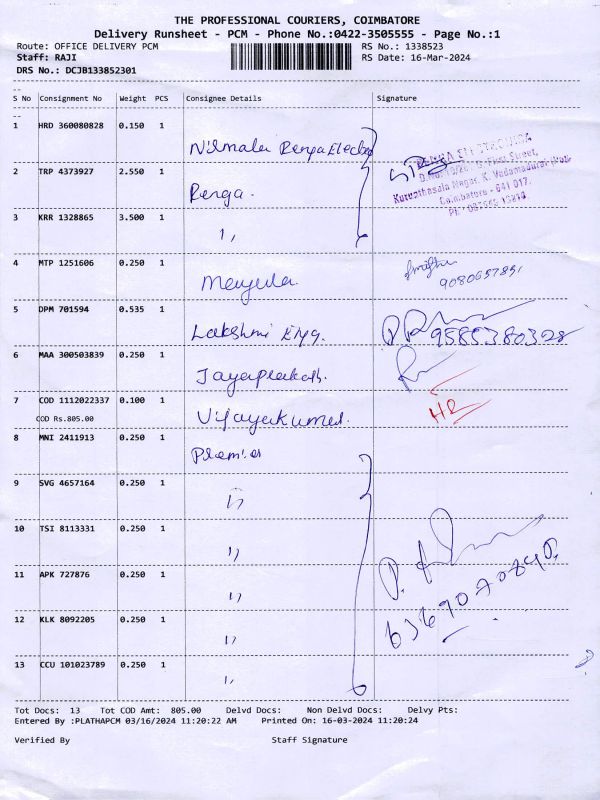 THE PROFESSIONAL COURIERS, COIMBATORE
Delivery Runsheet - PCM - Phone No.:0422-3505555 - Page No.:1
Route: OFFICE DELIVERY PCM RS No.: 1338523
Staff: RAJI RS Date: 16-Mar-2024
DRS No.: DCJB133852301
S No Consignment No Weight PCS Consignee Details Signature
1 HRD 360080828 0.150 1 Nirmala Renga Electro
RENGA ELECTRONICS
First Street,
Kurunthasala Nagar, K. Vadamadurai
Coimbatore - 641 017.
2 TRP 4373927 2.550 1 Renga.
3 KRR 1328865 3.500 1 ,,
4 MTP 1251606 0.250 1 Manjula
5 DPM 701594 0.535 1 Lakshmi Eng. 9585380328
6 MAA 300503839 0.250 1 Jayaprakash.
7 COD 1112022337 0.100 1 Vijayakumar.
COD Rs.805.00
8 MNI 2411913 0.250 1 Premier
9 SVG 4657164 0.250 1 ,,
10 TSI 8113331 0.250 1 ,,
11 APK 727876 0.250 1 ,,
12 KLK 8092205 0.250 1 ,,
13 CCU 101023789 0.250 1 ,,
Tot Docs: 13 Tot COD Amt: 805.00 Delvd Docs: Non Delvd Docs: Delvy Pts:
Entered By :PLATHAPCM 03/16/2024 11:20:22 AM Printed On: 16-03-2024 11:20:24
Verified By Staff Signature